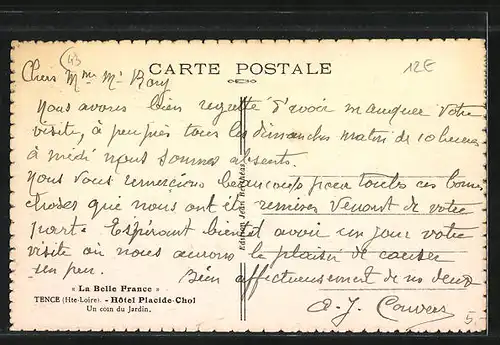 43
12E
CARTE POSTALE
Chers Mme Mr
Nous avons bien regretté d'avoir manquer votre
visite, à peu près tous les dimanches matin de 10 heures
à midi nous sommes absents.
Nous vous remercions beaucoup pour toutes ces bonnes
choses que nous ont été remises venant de votre
part. Espérant bientôt avoir un jour votre
visite où nous aurons le plaisir de causer
un peu.
Bien affectueusement de nous deux
A. J.
« La Belle France »
TENCE (Hte-Loire). - Hôtel Placide-Chol
Un coin du Jardin.
5-